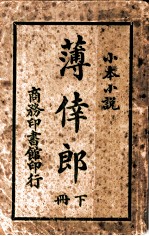 小本小說
薄倖郎
下冊
商務印書館印行